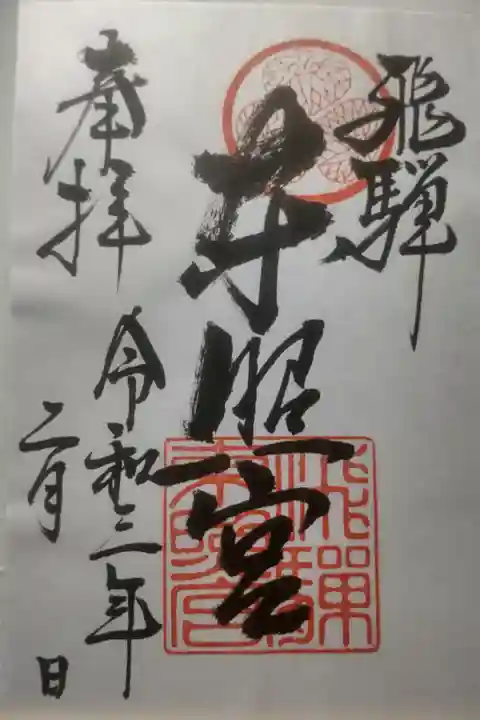 飛騨
東照宮
奉拝
令和三年
二月 日
飛騨
東照宮